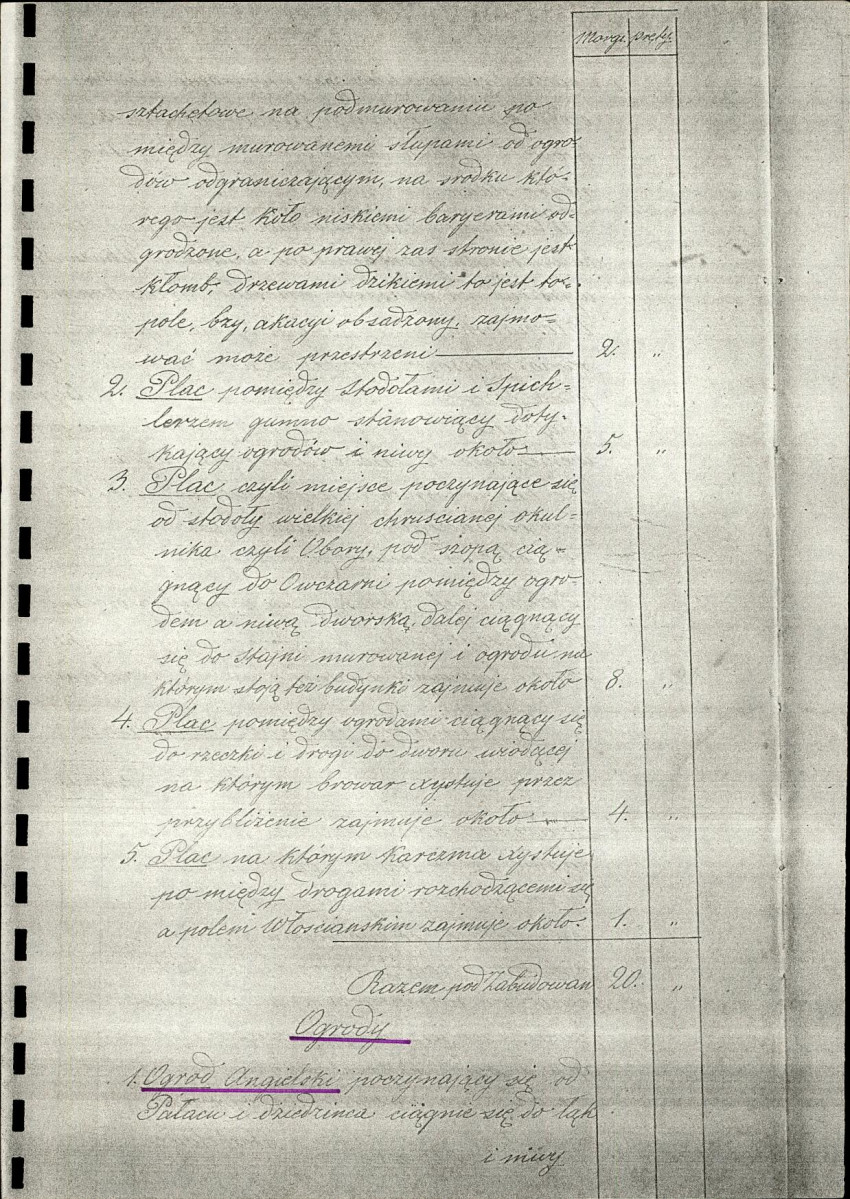 Morgi pręty
sztachetowe na podmurowaniu po
między murowanemi słupami od ogro-
dów odgraniczającym, na srodku któ-
rego jest koło niskiemi baryerami od-
grodzone, a po prawej zas stronie jest
kłomb, drzewami dzikiemi to jest to-
pole, bzy, akacyi obsadzony, zajmo-
wać może przestrzeni 2. "
2. Plac pomiędzy Stodołami i Spich-
lerzem gumno stanowiący doty-
kający ogrodów i niwy około 5. "
3. Plac czyli miejsce poczynające się
od stodoły wielkiej chruscianej okul-
nika czyli Obory, pod szopą cią-
gnący do Owczarni pomiędzy ogro-
dem a niwą dworską, dalej ciągnący
się do Stajni murowanej i ogrodu na
którym stoją też budynki zajmuje około 8. "
4. Plac pomiędzy ogrodami ciągnący się
do rzeczki i drogi do dworu wiodącej
na którym browar xystuje przez
przybliżenie zajmuje około 4. "
5. Plac na którym Karczma xystuje
po między drogami rozchodzącemi się
a polem Włoscianskim zajmuje około. 1. "
Razem pod Zabudowan 20. "
Ogrody
1. Ogrod Angielski poczynający się od
Pałacu i dziedzinca ciągnie się do łąk
i niwy